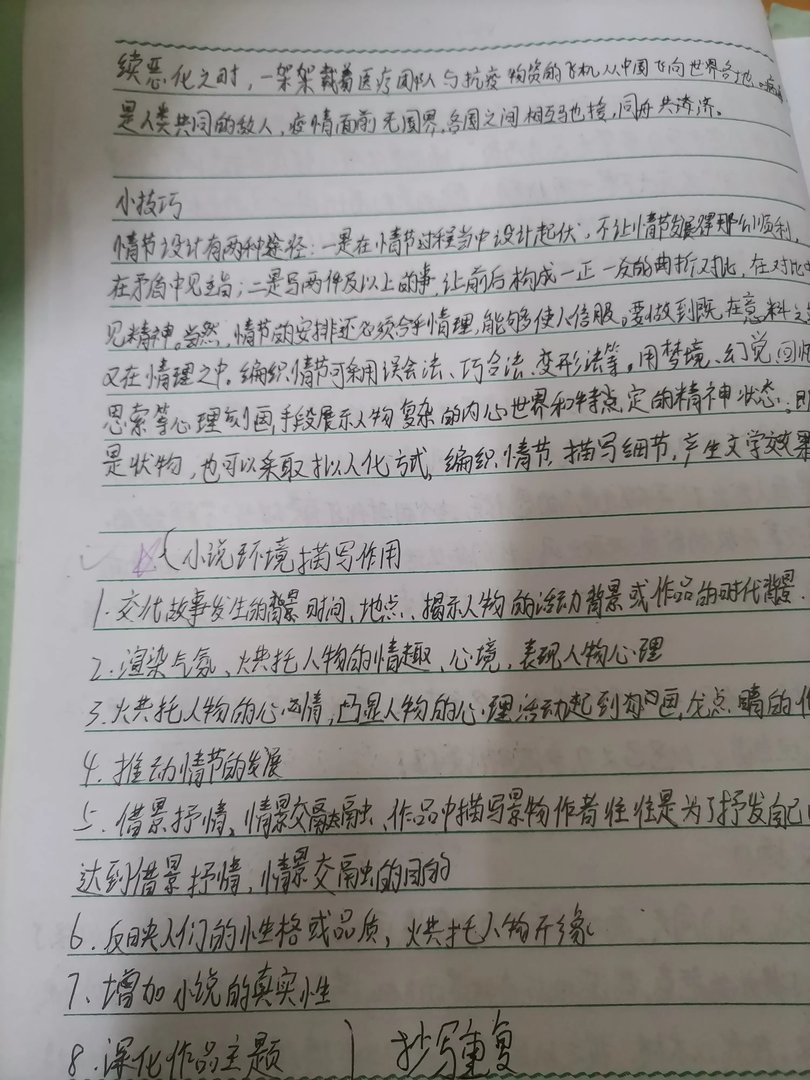 续恶化之时，一架架载着医疗团队与抗疫物资的飞机从中国飞向世界各地。病
是人类共同的敌人，疫情面前无国界，各国之间相互驰援，同舟共济。
小技巧
情节设计有两种途径：一是在情节过程当中设计起伏，不让情节发展得那么顺利，
在矛盾中见主旨；二是写两件及以上的事，让前后构成一正一反的曲折对比，在对比中
见精神。当然，情节的安排还必须合乎情理，能够使人信服。要做到既在意料之
又在情理之中。编织情节可采用误会法、巧合法、变形法等。用梦境、幻觉、回忆
思索等心理刻画手段展示人物复杂的内心世界和特点定的精神状态；即
是状物，也可以采取拟人化方式，编织情节，描写细节，产生文学效果
小说环境描写作用
1. 交代故事发生的背景时间、地点、揭示人物的活动背景或作品的时代背景.
2. 渲染气氛、烘托人物的情趣、心境，表现人物心理
3. 烘托人物的心情，凸显人物的心理活动起到勾画，点睛的作
4. 推动情节的发展
5. 借景抒情，情景交融，作品中描写景物作者往往是为了抒发自己
达到借景抒情，情景交融的目的
6. 反映人们的性格或品质，烘托人物形象
7. 增加小说的真实性
8. 深化作品主题
抄写重复